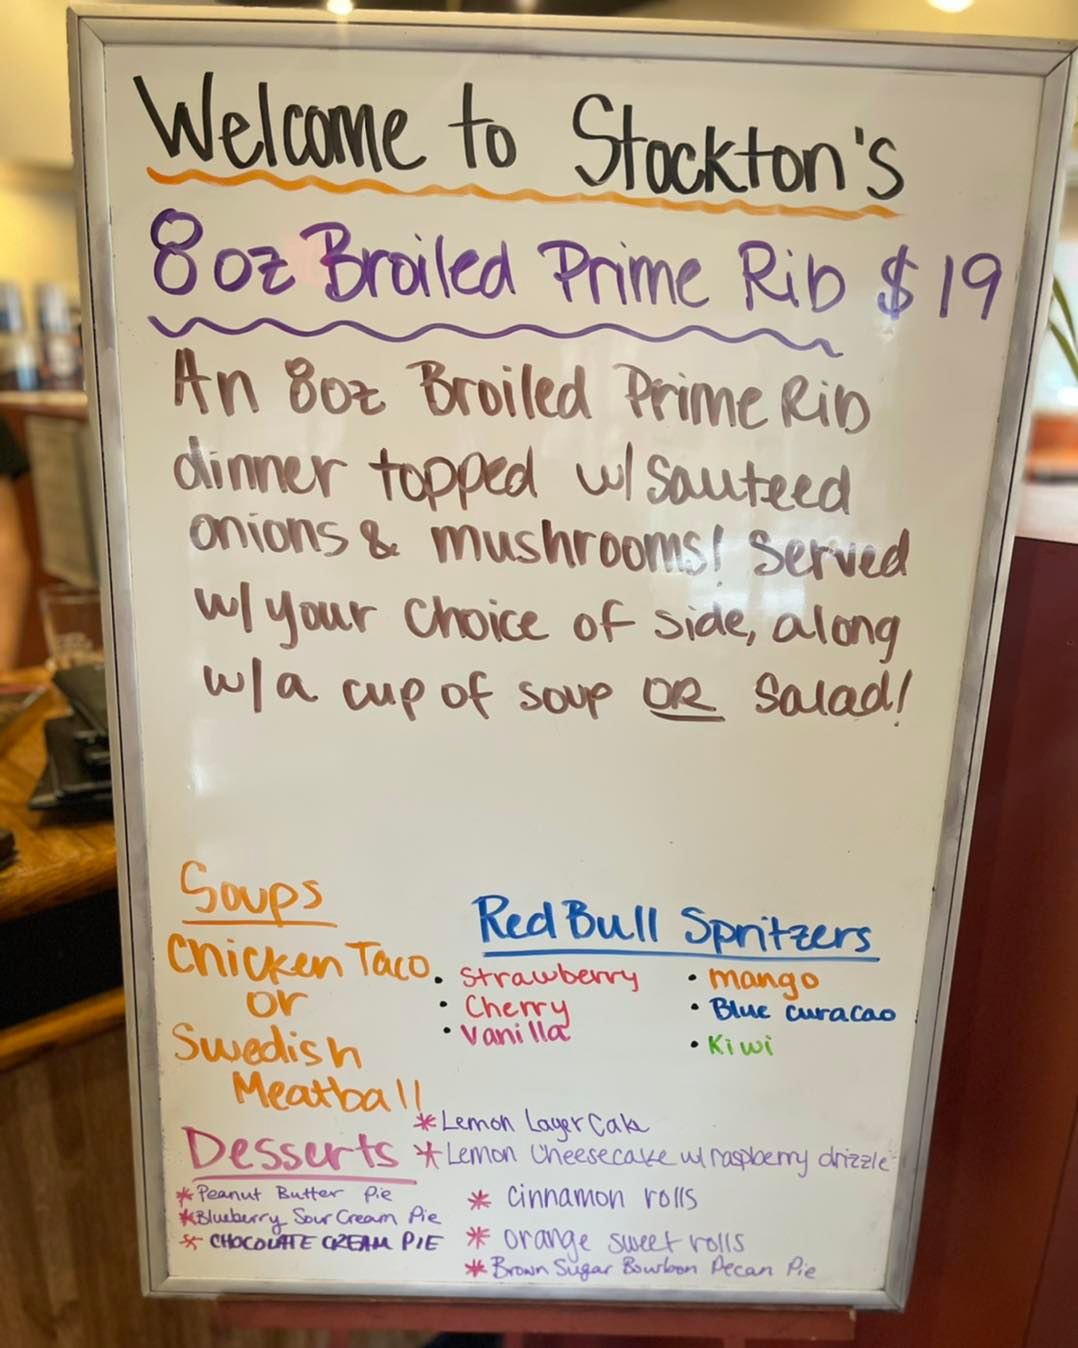 Welcome to Stockton's
8oz Broiled Prime Rib $19
An 8oz Broiled Prime Rib
dinner topped w/ sauteed
onions & mushrooms! Served
w/ your choice of side, along
w/ a cup of soup OR Salad!
Soups
Chicken Taco
or
Swedish
Meatball
Red Bull Spritzers
• Strawberry
• Cherry
• Vanilla
• mango
• Blue curacao
• Kiwi
Desserts
* Lemon Layer Cake
* Lemon Cheesecake w/ raspberry drizzle
* Peanut Butter Pie
* Blueberry Sour Cream Pie
* CHOCOLATE CREAM PIE
* cinnamon rolls
* orange sweet rolls
* Brown Sugar Bourbon Pecan Pie